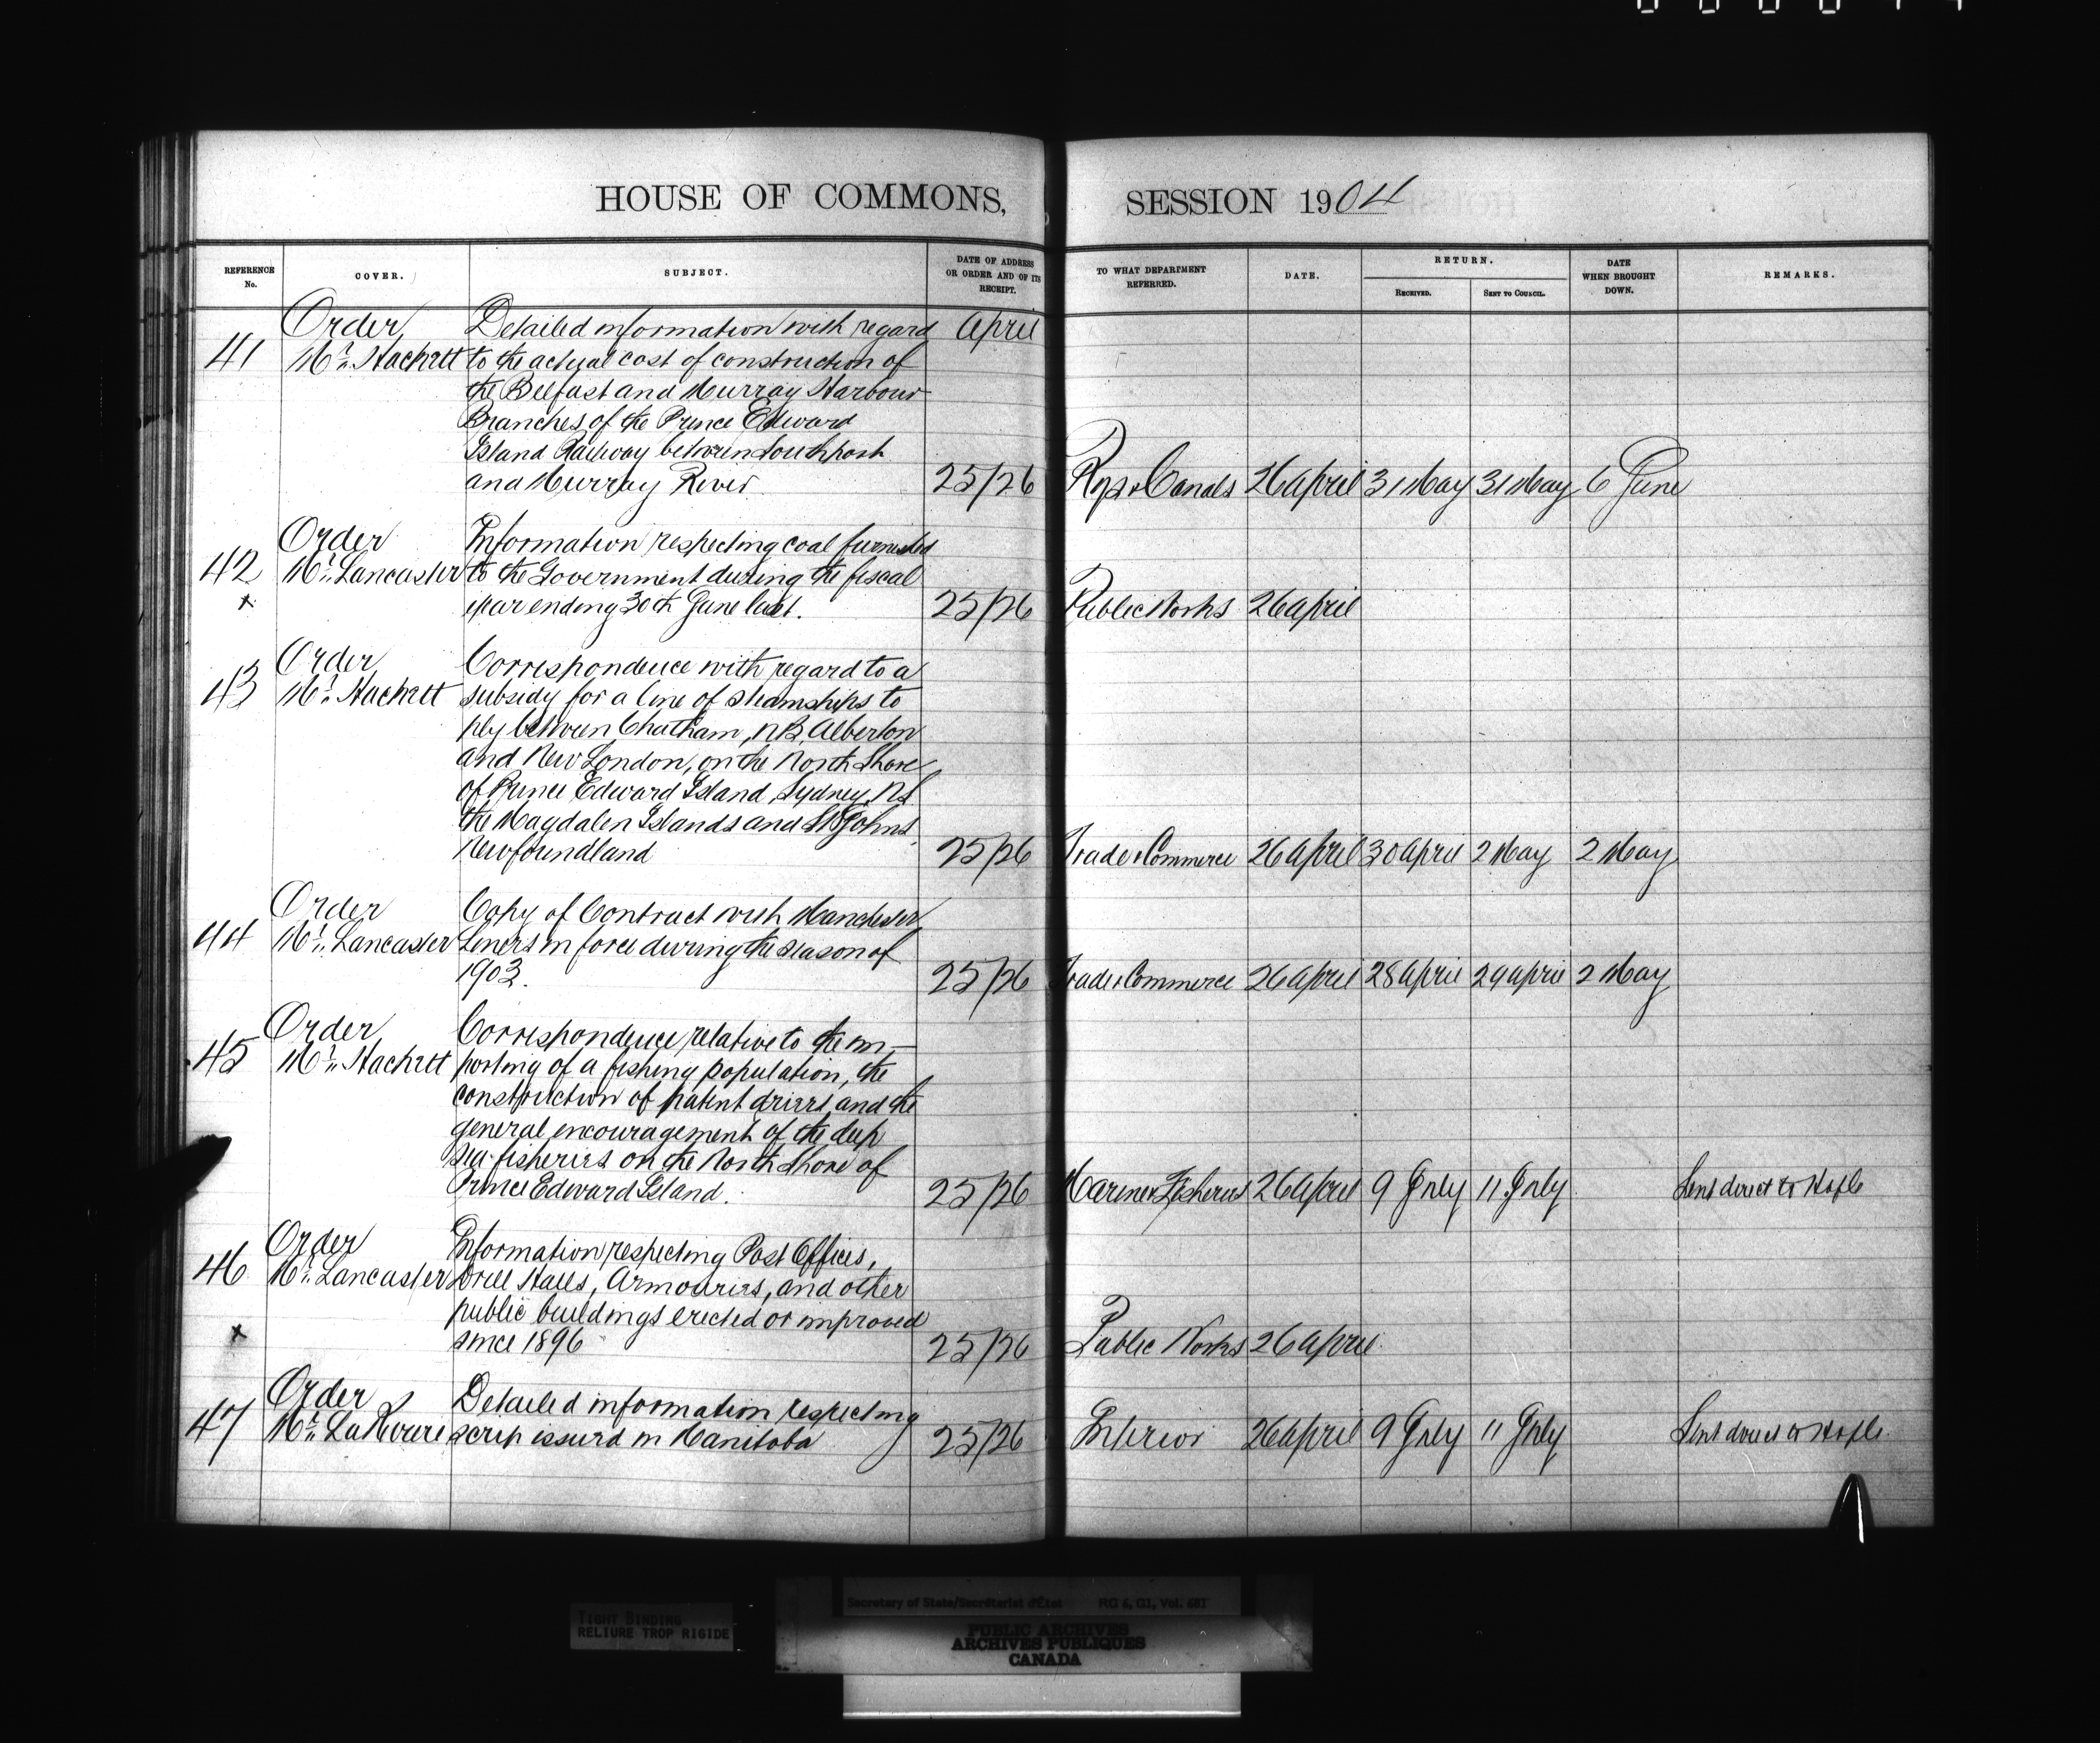 HOUSE OF COMMONS, SESSION 1904
REFERENCE No. COVER. SUBJECT. DATE OF ADDRESS OR ORDER AND OF ITS RECEIPT. TO WHAT DEPARTMENT REFERRED. DATE. RETURN. RECEIVED. SENT TO COUNCIL. DATE WHEN BROUGHT DOWN. REMARKS.
Order Detailed information with regard April
41 Mr. Hackett to the actual cost of construction of
the Belfast and Murray Harbour
Branches of the Prince Edward
Island Railway between Southport
and Murray River 25/26 Rys & Canals 26 April 31 May 31 May 6 June
Order Information respecting coal furnished
42 Mr. Lancaster to the Government during the fiscal
x year ending 30th June last. 25/26 Public Works 26 April
Order Correspondence with regard to a
43 Mr. Hackett subsidy for a line of steamships to
ply between Chatham, N.B. Alberton
and New London, on the North Shore
of Prince Edward Island, Sydney, N.S.
the Magdalen Islands and St Johns,
Newfoundland 25/26 Trade & Commerce 26 April 30 April 2 May 2 May
Order Copy of Contract with Manchester
44 Mr. Lancaster Liners in force during the season of
1903. 25/26 Trade & Commerce 26 April 28 April 29 April 2 May
Order Correspondence relative to the im-
45 Mr. Hackett porting of a fishing population, the
construction of patent driers, and the
general encouragement of the deep
sea fisheries on the North Shore of
Prince Edward Island. 25/26 Marine & Fisheries 26 April 9 July 11 July Sent direct to HofC
Order Information respecting Post Offices,
46 Mr. Lancaster Drill Halls, Armouries, and other
public buildings erected or improved
x since 1896 25/26 Public Works 26 April
Order Detailed information respecting
47 Mr. LaRiviere scrip issued in Manitoba 25/26 Interior 26 April 9 July 11 July Sent direct to HofC.
TIGHT BINDING
RELIURE TROP RIGIDE
Secretary of State/Secrétariat d'État RG 6, G1, Vol. 681
PUBLIC ARCHIVES
ARCHIVES PUBLIQUES
CANADA